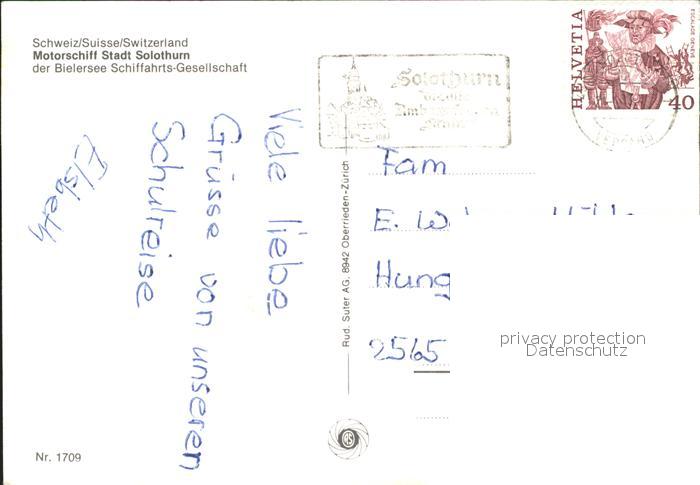 Schweiz/Suisse/Switzerland
Motorschiff Stadt Solothurn
der Bielersee Schiffahrts-Gesellschaft
Viele liebe
Grüsse von unseren
Schulreise
Elsbeth
Nr. 1709
Rud. Suter AG. 8942 Oberrieden-Zürich
RS
Solothurn
HELVETIA
ESCALADE GENEVE
40
Fam
E. W
Hung
2565
privacy protection
Datenschutz